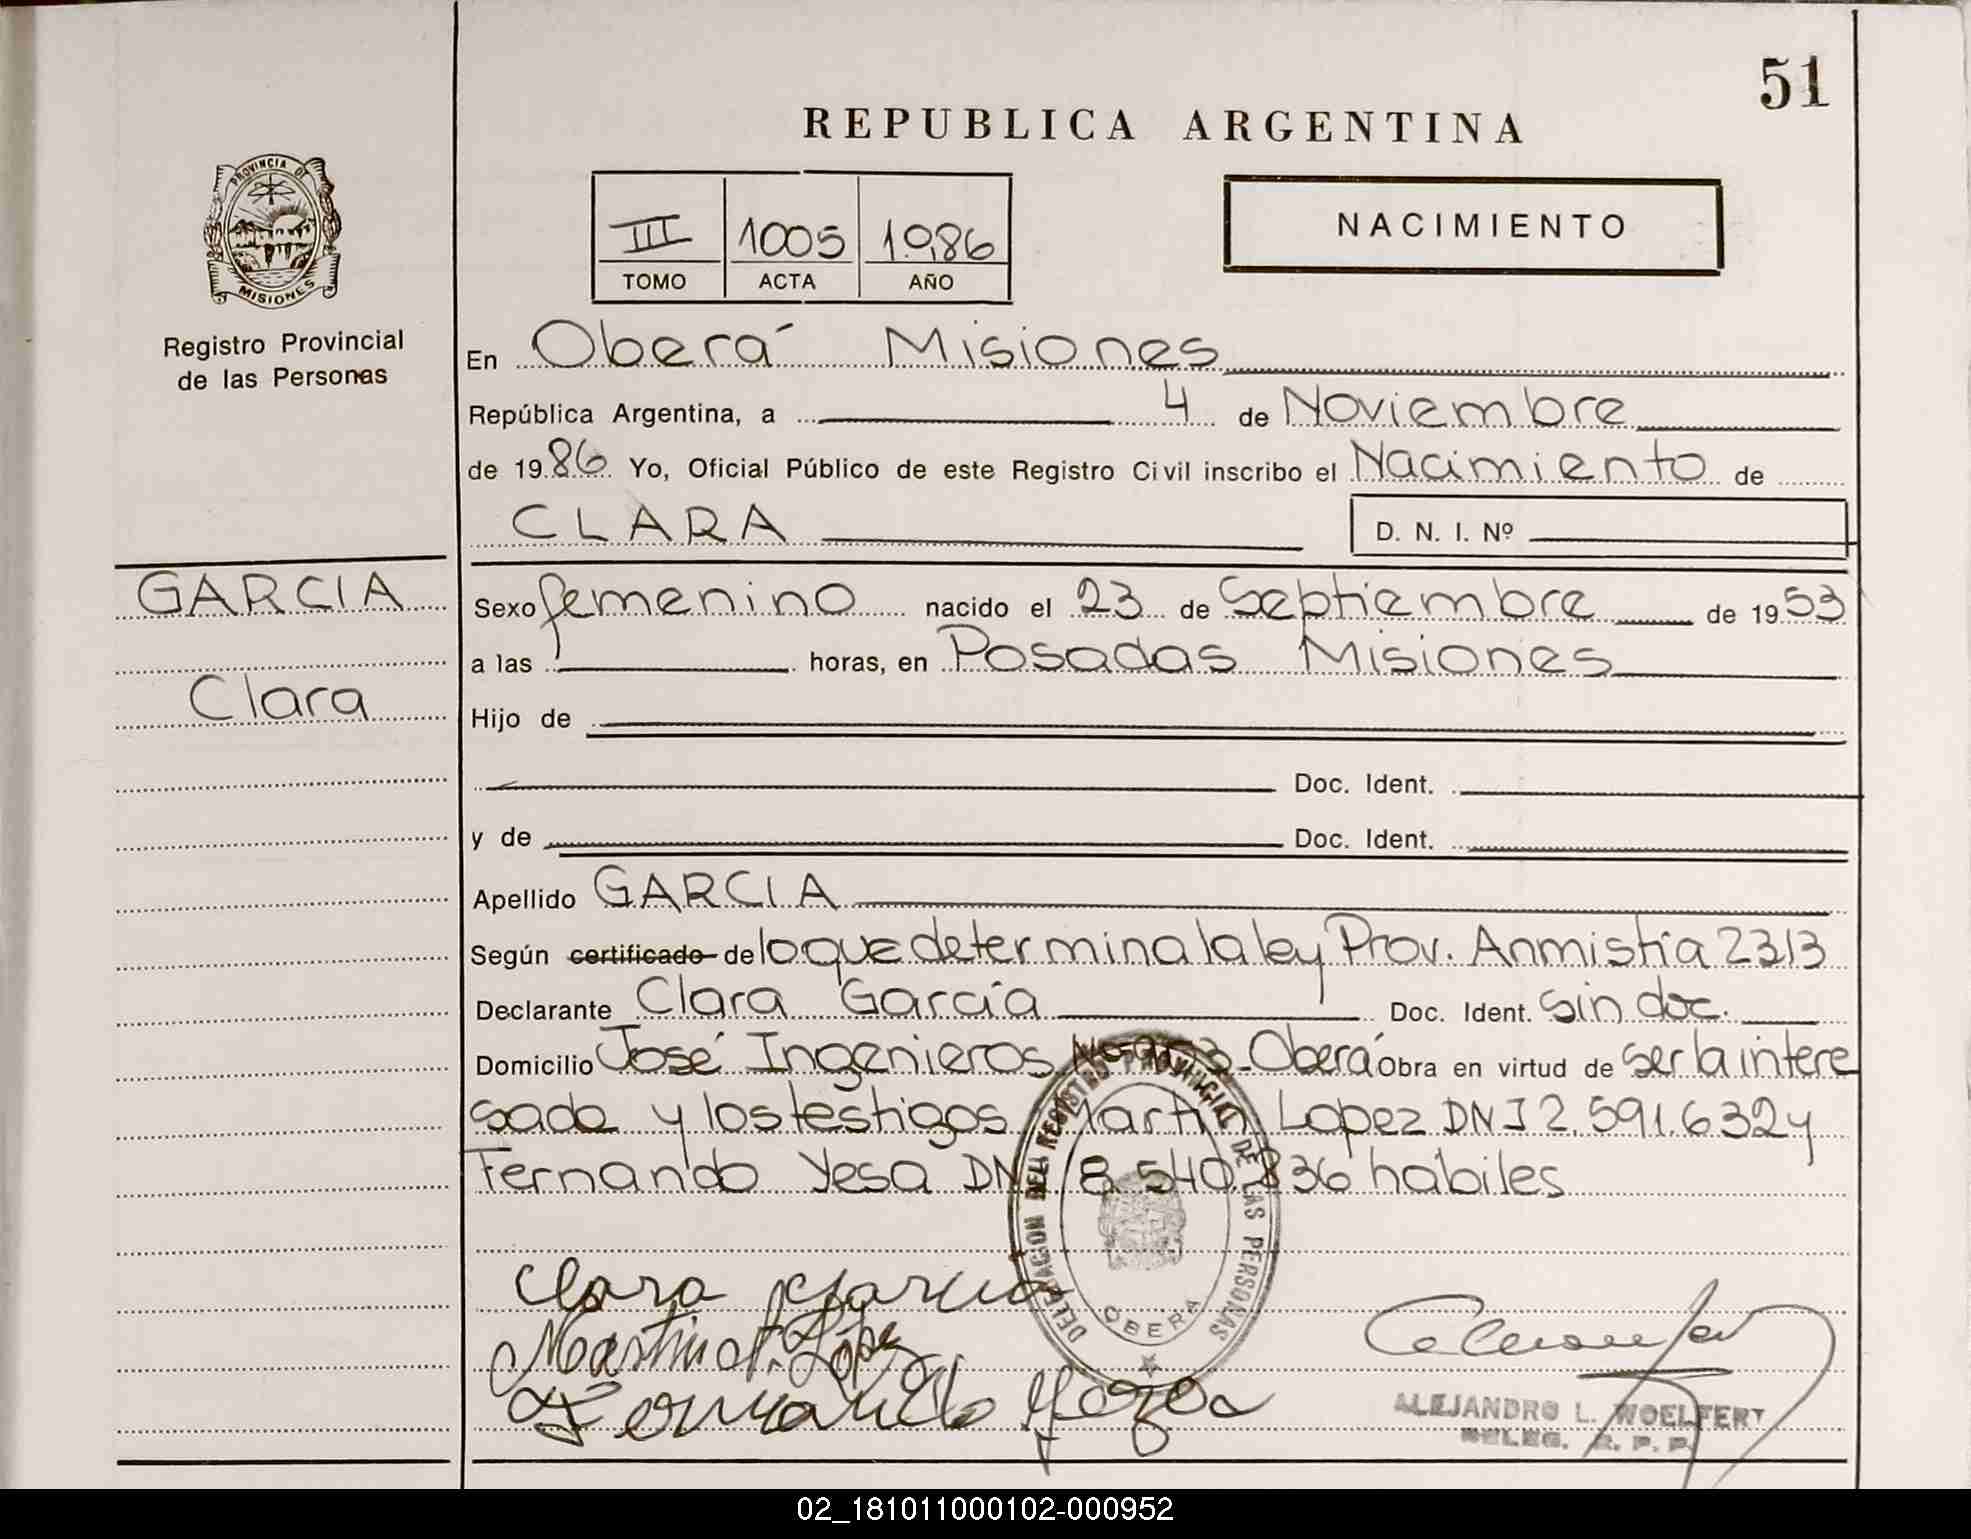 51
REPUBLICA ARGENTINA
PROVINCIA DE
MISIONES
Registro Provincial
de las Personas
III 1005 1986
TOMO ACTA AÑO
NACIMIENTO
En Oberá Misiones
República Argentina, a 4 de Noviembre
de 1986 Yo, Oficial Público de este Registro Civil inscribo el Nacimiento de
CLARA D. N. I. Nº
GARCIA
Clara
Sexo femenino nacido el 23 de Septiembre de 1953
a las horas, en Posadas Misiones
Hijo de
Doc. Ident.
y de Doc. Ident.
Apellido GARCIA
Según certificado de lo que determina la ley Prov. Anmistía 2313
Declarante Clara García Doc. Ident. Sin doc.
Domicilio José Ingenieros Oberá Obra en virtud de ser la intere
sada y los testigos Martin Lopez DNI 2.591.632 y
Fernando Yesa DNI 8.540.836 habiles
DELEGACION DEL REGISTRO PROVINCIAL DE LAS PERSONAS
OBERA
Clara Garcia
Martin López
Fernando
ALEJANDRO L. WOELFERT
DELEG. R. P. P.
02_181011000102-000952